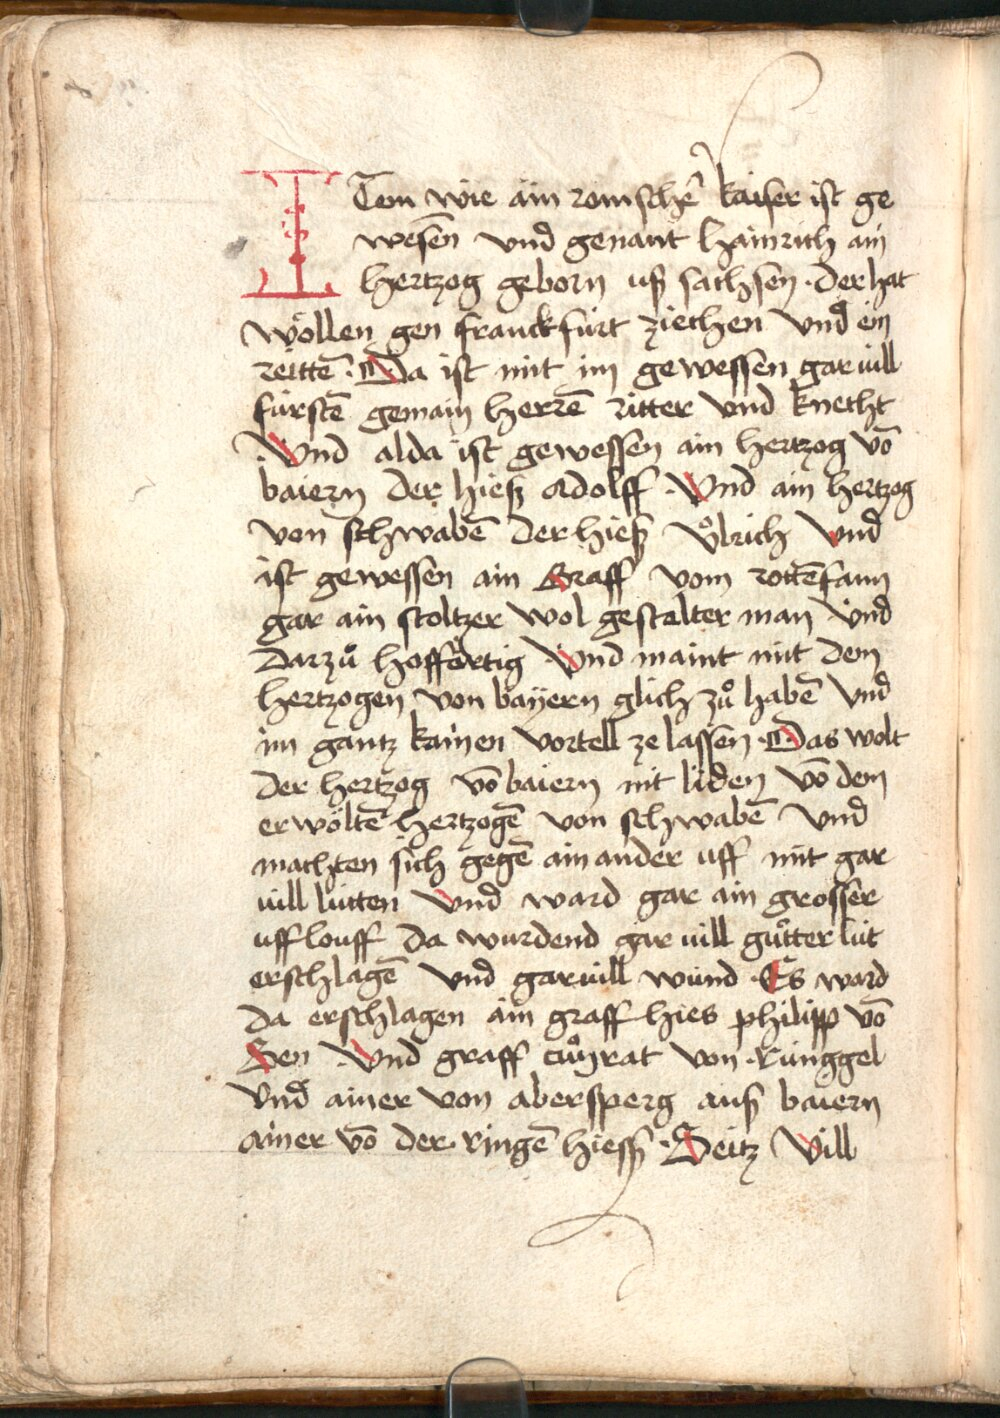 ITem wie ain romscher̄ kaiser ist ge
wesen vnd genant hainrich ain
hertzog geborn uß sachsen · der hat
wöllen gen franckfúrt ziechen vnd ein
reittē · Da ist mit im gewessen gar uill
fúrstē gemain herrē ritter vnd knecht
Vnd alda ist gewessen ain hertzog vō
baiern der hieß Adolff · Vnd ain hertzog
von schwabē der hieß vͦlrich vnd
ist gewessen ain Graff vom rottēfann
gar ain stoltzer wol gestalter man vnd
darzuͦ hoffertig Vnd maint mit dem
hertzogen von bayern glich zuͦ habē vnd
im gantz kainen vortell ze lassen · Das wolt
der hertzog vō baiern nit liden vō dem
erwöltē hertzogē von schwabē vnd
machten sich gegē ain ander uff mit gar
uill lútten vnd ward gar ain grosser
ufflouff da wurdend gar uill guͦtter lút
erschlagē vnd gar uill wund · Es ward
da erschlagen ain graff hies philipp vō
Sen Vnd graff cuͦnrat von Rúnggel
vnd ainer von abersperg auß baiern
ainer vō der ringē hieß · Seitz Vill